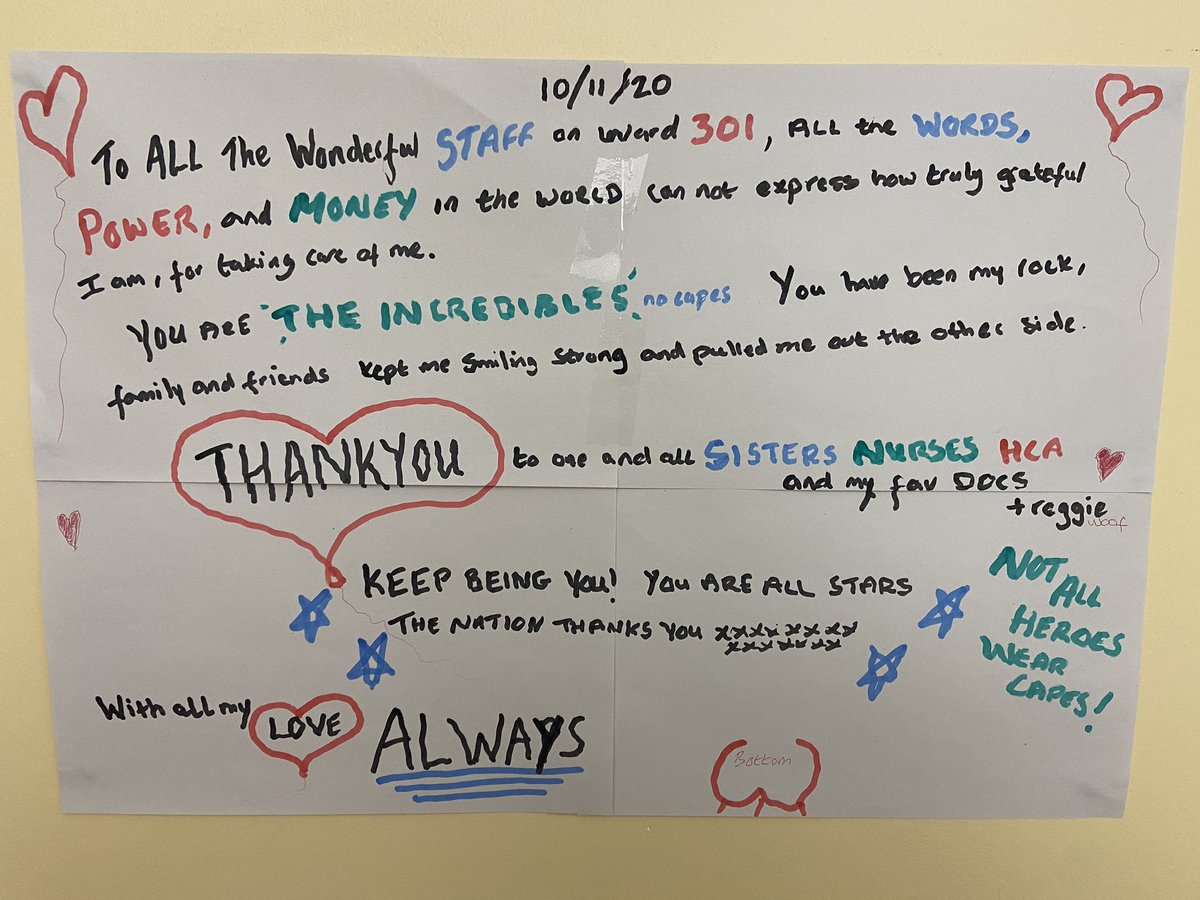 10/11/20
To ALL The Wonderful STAFF on ward 301, ALL the WORDS,
POWER, and MONEY in the WORLD can not express how truly grateful
I am, for taking care of me.
YOU ARE 'THE INCREDIBLES' no capes You have been my rock,
family and friends kept me smiling strong and pulled me out the other side.
THANKYOU to one and all SISTERS NURSES HCA
and my fav DOCS
+ reggie woof
KEEP BEING YOU! YOU ARE ALL STARS
THE NATION THANKS YOU xxxx xxxx
xxxxxxx
NOT
ALL
HEROES
WEAR
CAPES!
With all my LOVE ALWAYS
Bottom